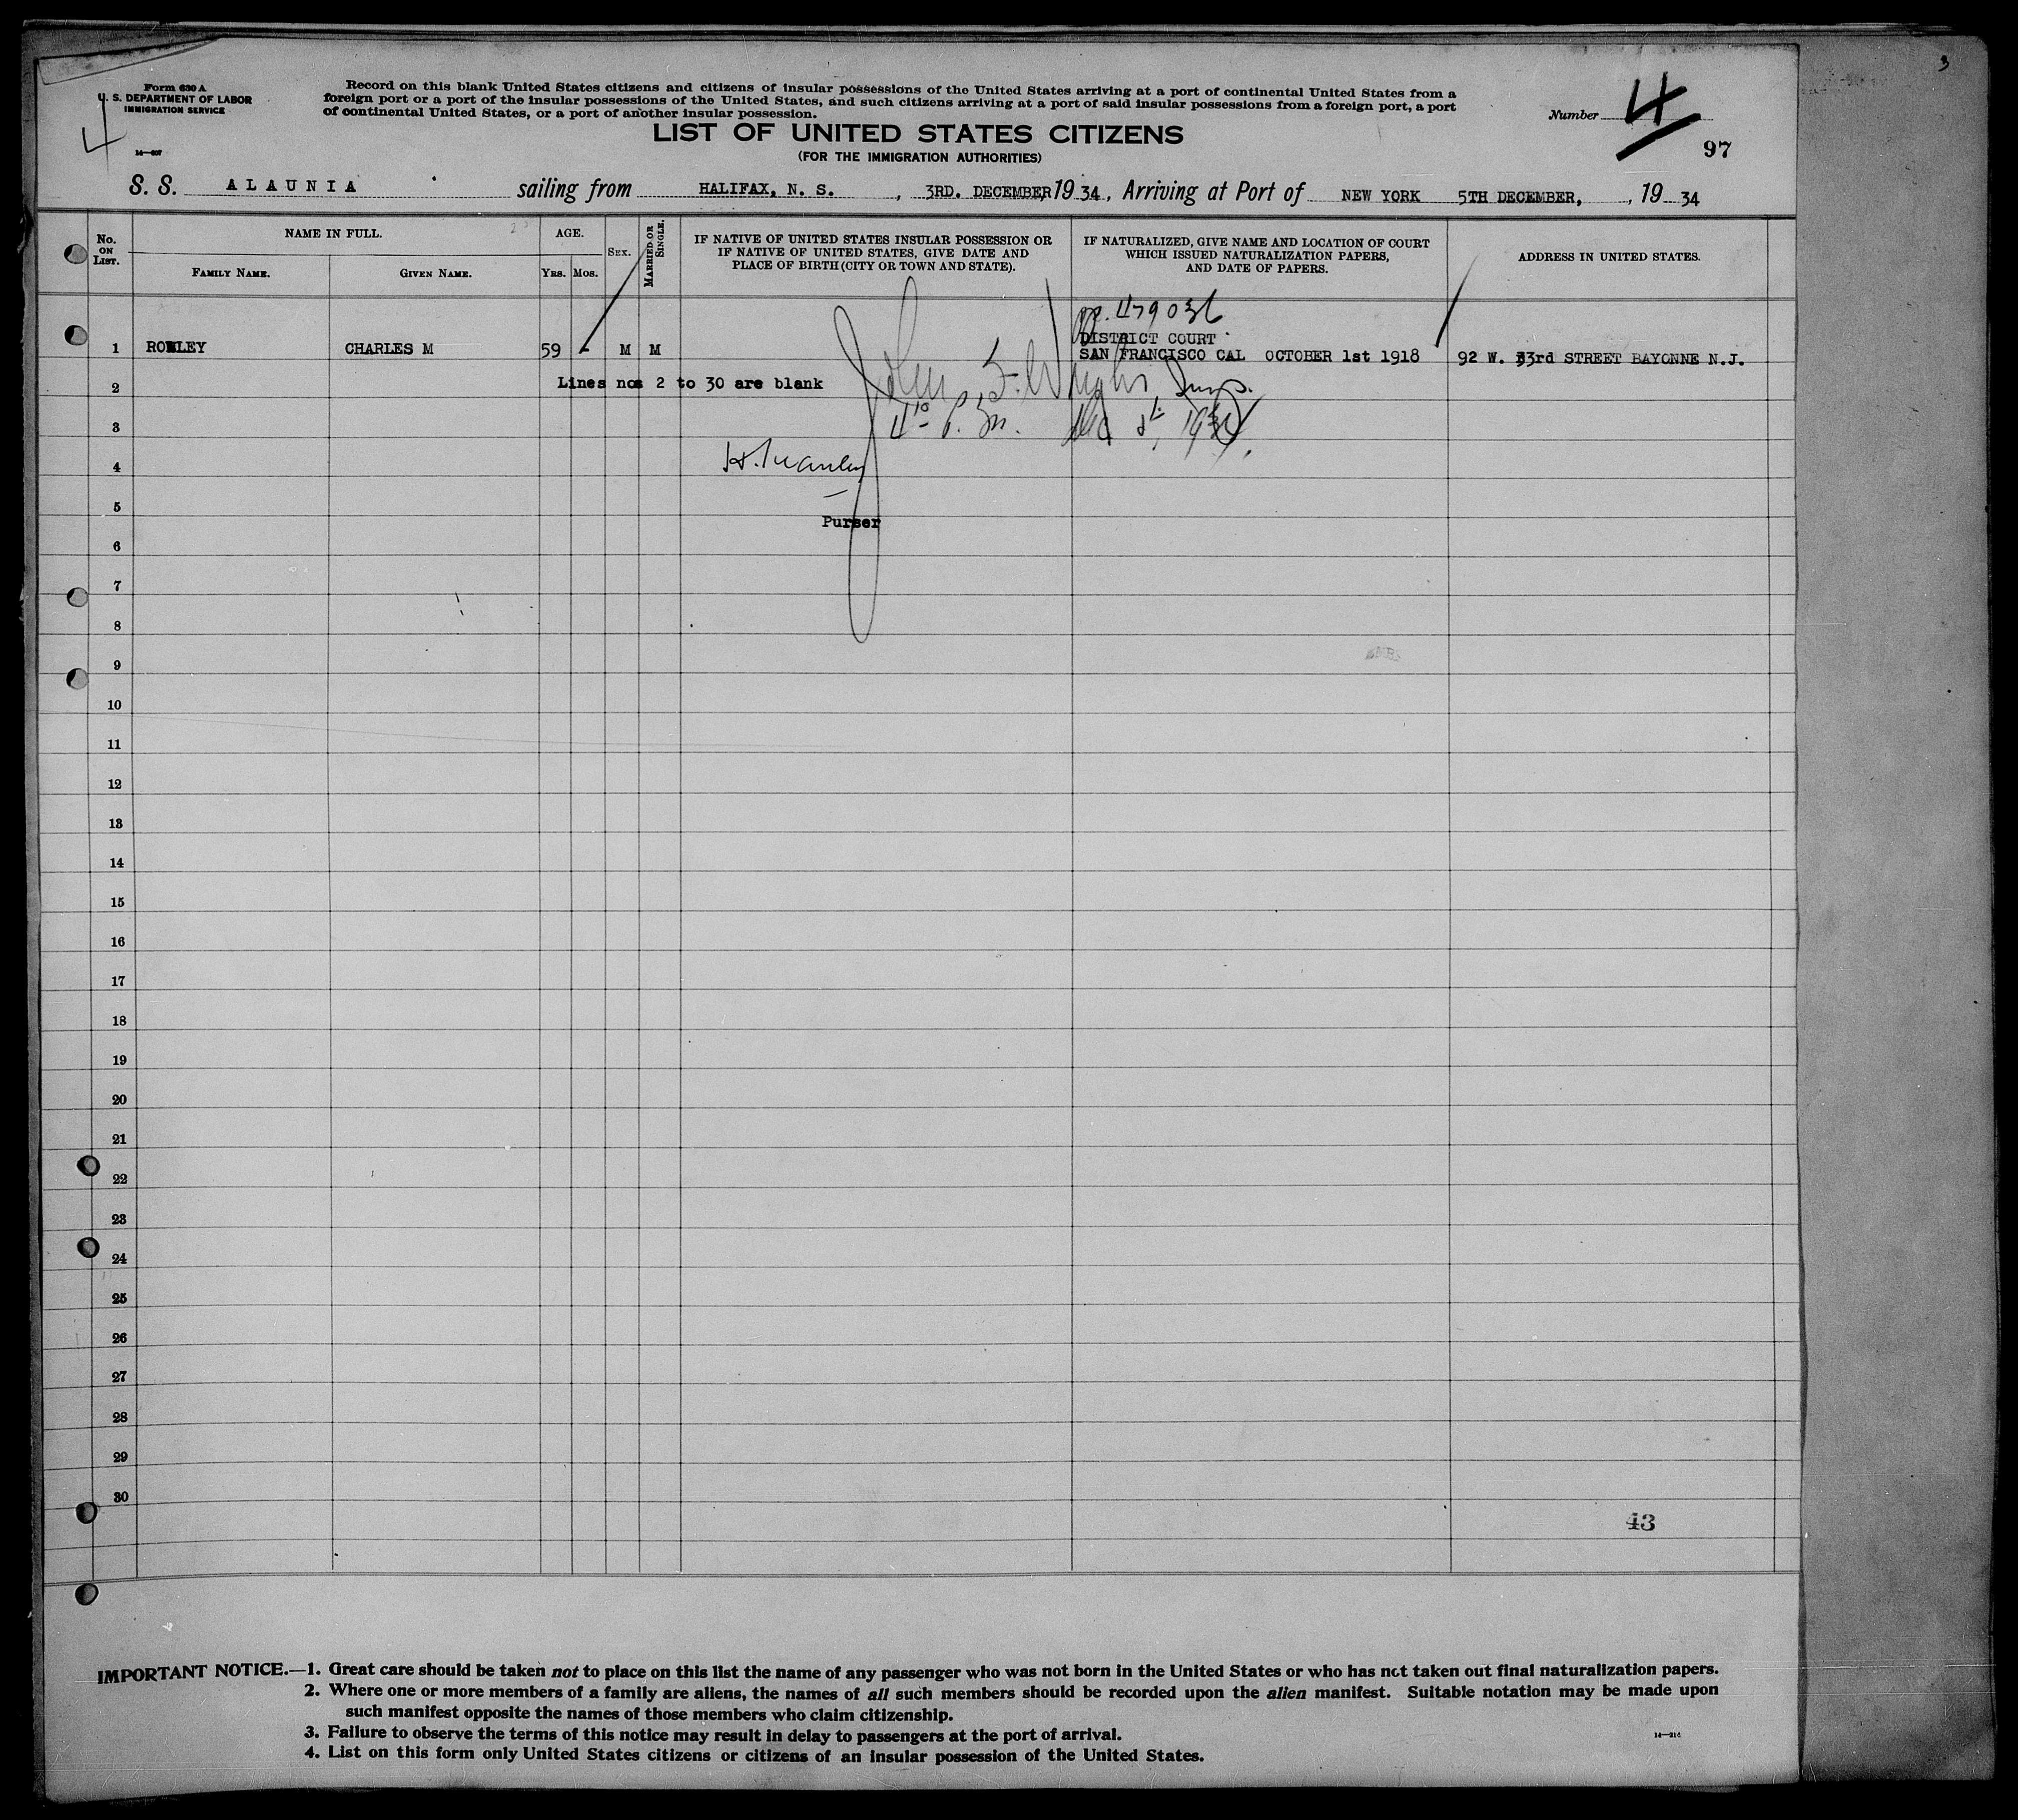 3
4
Form 630 A
U. S. DEPARTMENT OF LABOR
IMMIGRATION SERVICE
4
Record on this blank United States citizens and citizens of insular possessions of the United States arriving at a port of continental United States from a
foreign port or a port of the insular possessions of the United States, and such citizens arriving at a port of said insular possessions from a foreign port, a port
of continental United States, or a port of another insular possession.
Number
LIST OF UNITED STATES CITIZENS
(FOR THE IMMIGRATION AUTHORITIES)
97
S. S. ALAUNIA sailing from HALIFAX, N. S. , 3RD. DECEMBER, 19 34, Arriving at Port of NEW YORK 5TH DECEMBER, , 19 34
No. ON LIST.
NAME IN FULL.
FAMILY NAME.
GIVEN NAME.
AGE.
YRS.
MOS.
SEX.
MARRIED OR SINGLE.
IF NATIVE OF UNITED STATES INSULAR POSSESSION OR
IF NATIVE OF UNITED STATES, GIVE DATE AND
PLACE OF BIRTH (CITY OR TOWN AND STATE).
IF NATURALIZED, GIVE NAME AND LOCATION OF COURT
WHICH ISSUED NATURALIZATION PAPERS,
AND DATE OF PAPERS.
ADDRESS IN UNITED STATES.
pp. 479036
DISTRICT COURT
1 ROWLEY CHARLES M 59 - M M SAN FRANCISCO CAL OCTOBER 1st 1918 92 W. 33rd STREET BAYONNE N.J.
2 Lines nos 2 to 30 are blank
John F. Wright, Insp.
3
4
5
Purser
6
7
8
9
10
11
12
13
14
15
16
17
18
19
20
21
22
23
24
25
26
27
28
29
30
43
IMPORTANT NOTICE.—1. Great care should be taken not to place on this list the name of any passenger who was not born in the United States or who has not taken out final naturalization papers.
2. Where one or more members of a family are aliens, the names of all such members should be recorded upon the alien manifest. Suitable notation may be made upon
such manifest opposite the names of those members who claim citizenship.
3. Failure to observe the terms of this notice may result in delay to passengers at the port of arrival.
14—214
4. List on this form only United States citizens or citizens of an insular possession of the United States.